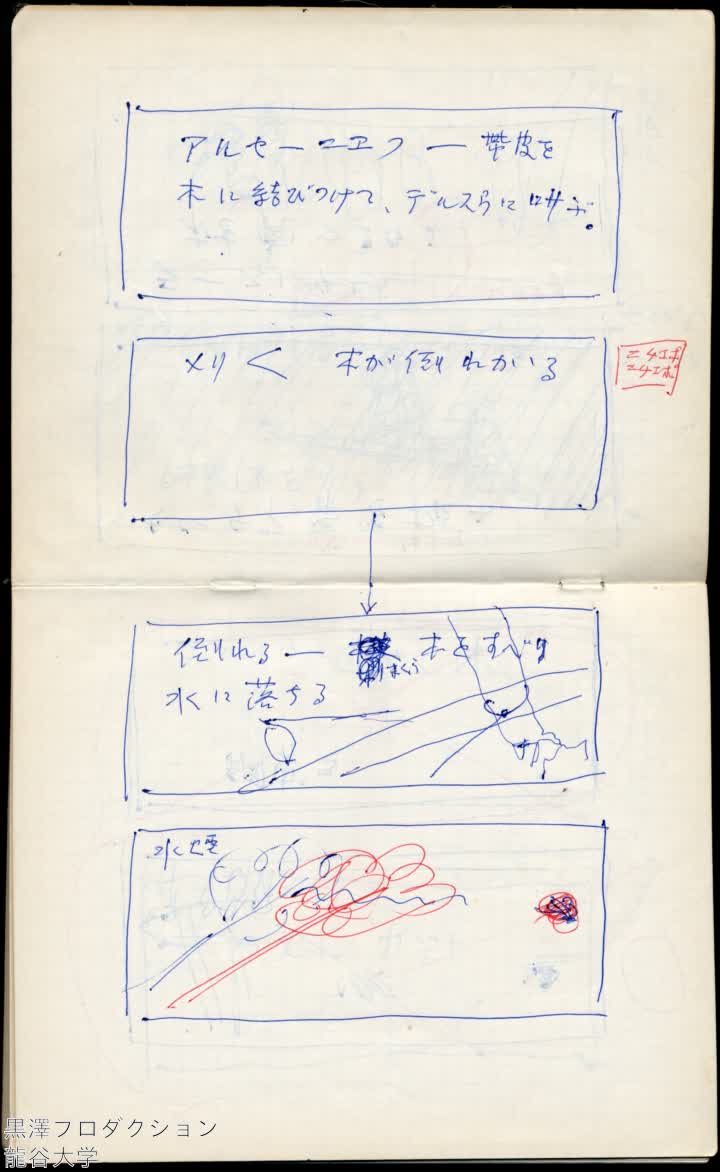 アルセーニエフ — 帯皮を
木に結びつけて、デルスウに叫ぶ。
メリ く 木が倒れかゝる
ニ4エホ
ニ4エホ
倒れる — 木をすべり
水に落ちる
水煙
黒澤プロダクション
龍谷大学